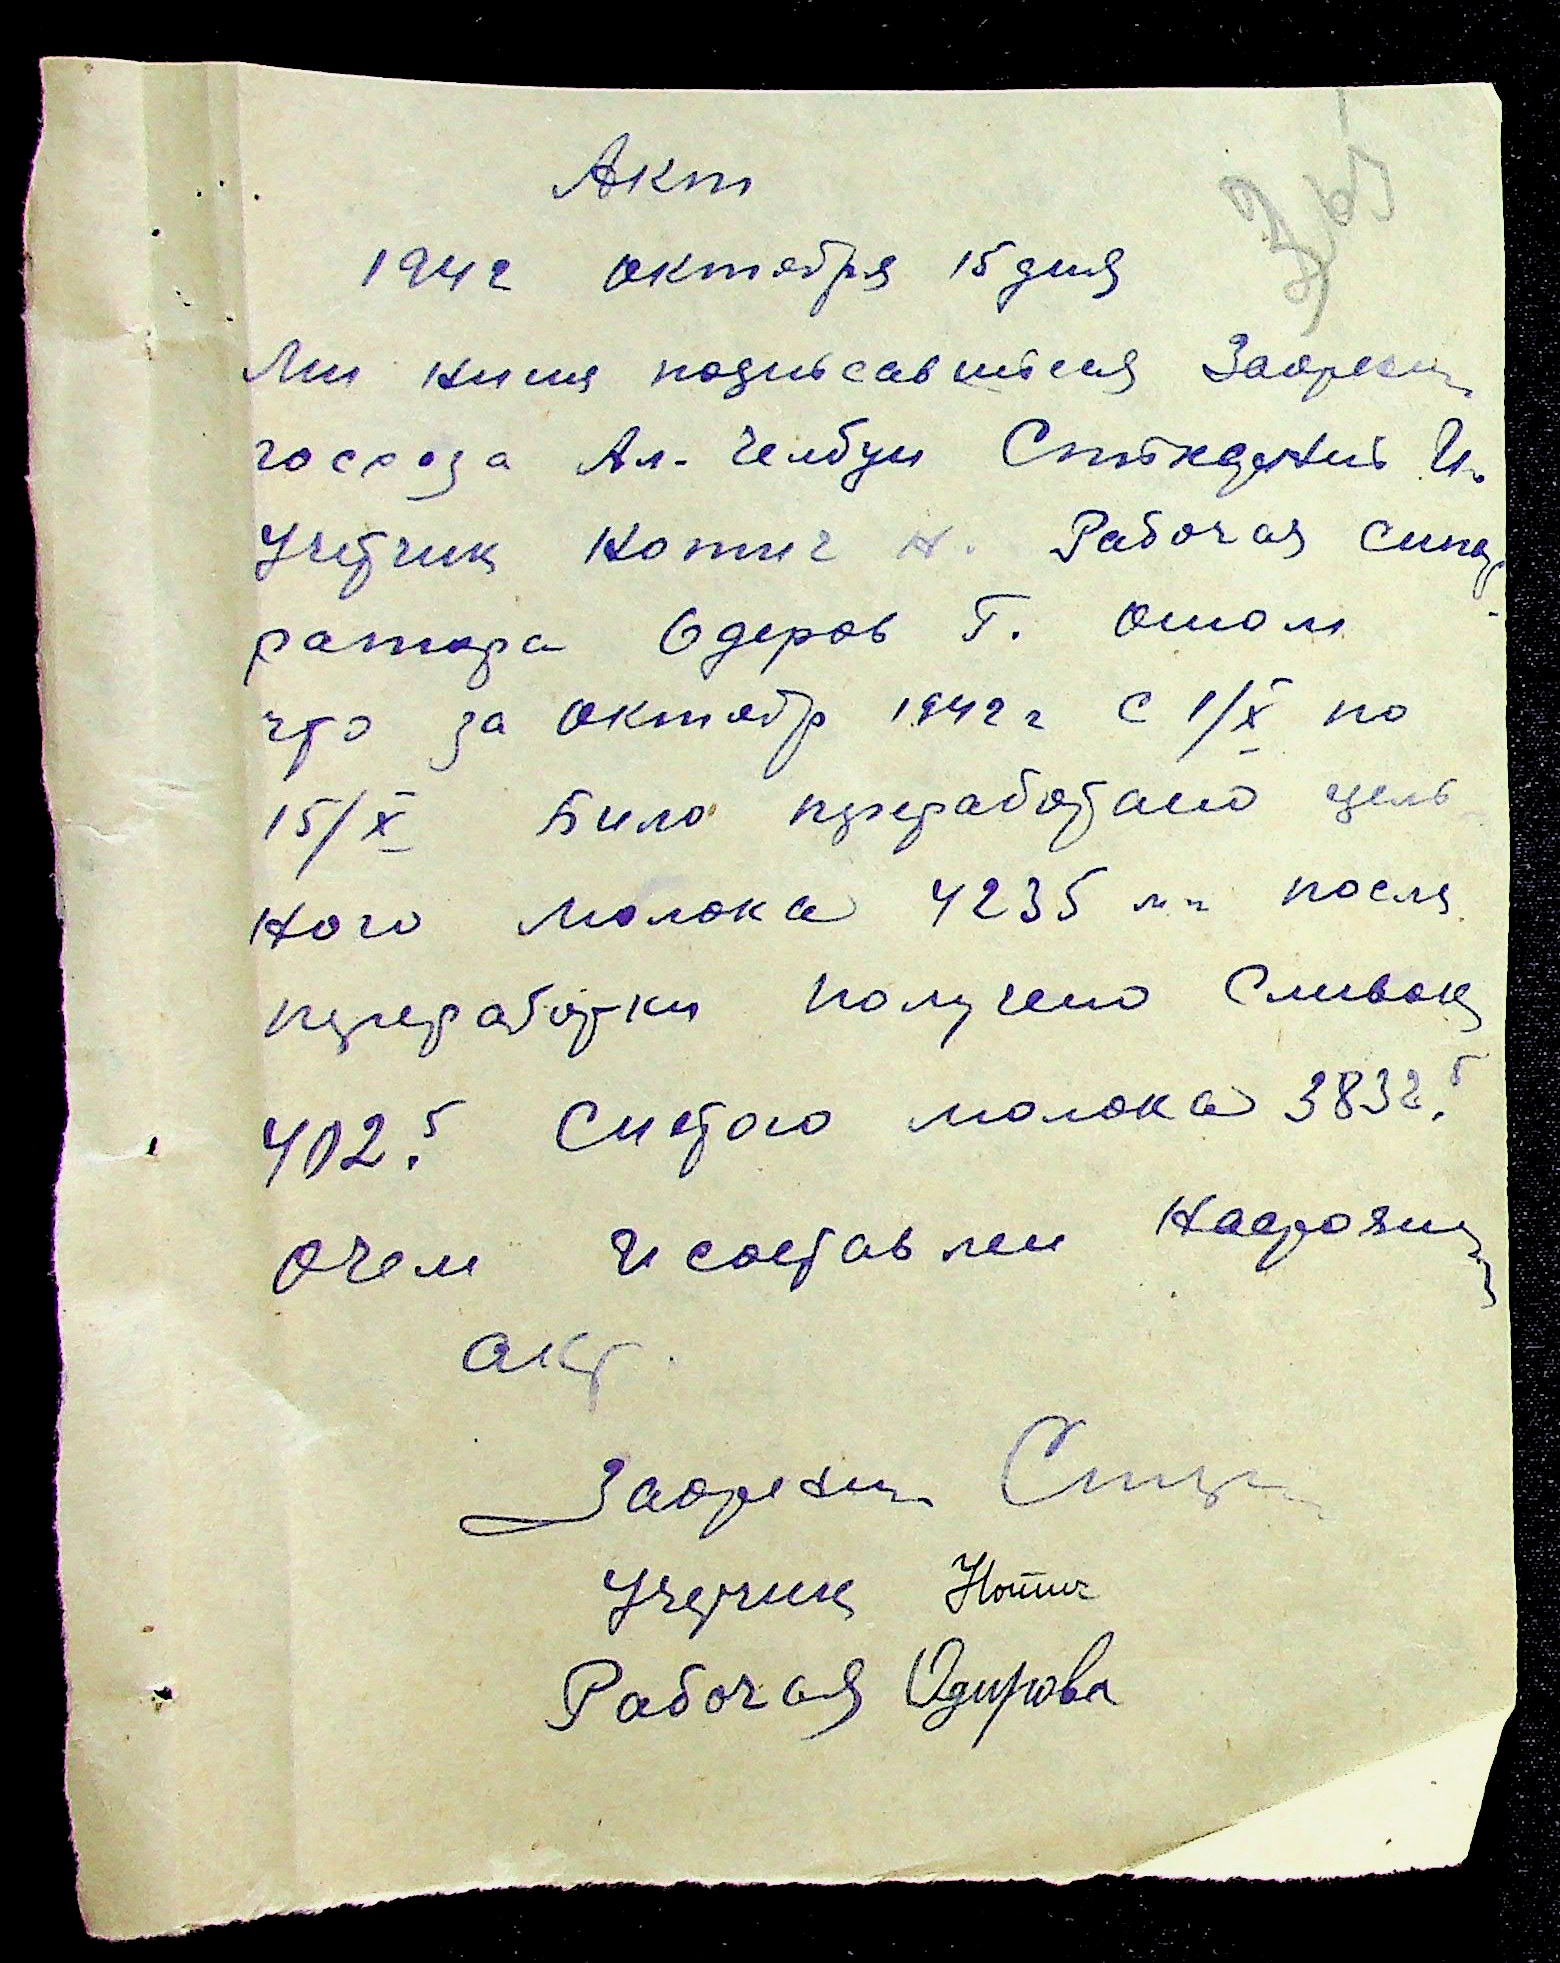 Акт
1942 октября 15 дня
Ми ниже подписавшиеся
госхоза Ал. Челбун И.
Учетчик Нотич Н. Рабочая сипа-
ратора Одеров Г. отом
что за октябр 1942 г с 1/X по
15/X Било переработано цель
ного молока 4235 после
переработки получено Сливок
402.5 Снетого молока 3832.5
Очем и составлен настоящ
акт.
Учетчик Нотич
Рабочая Одирова